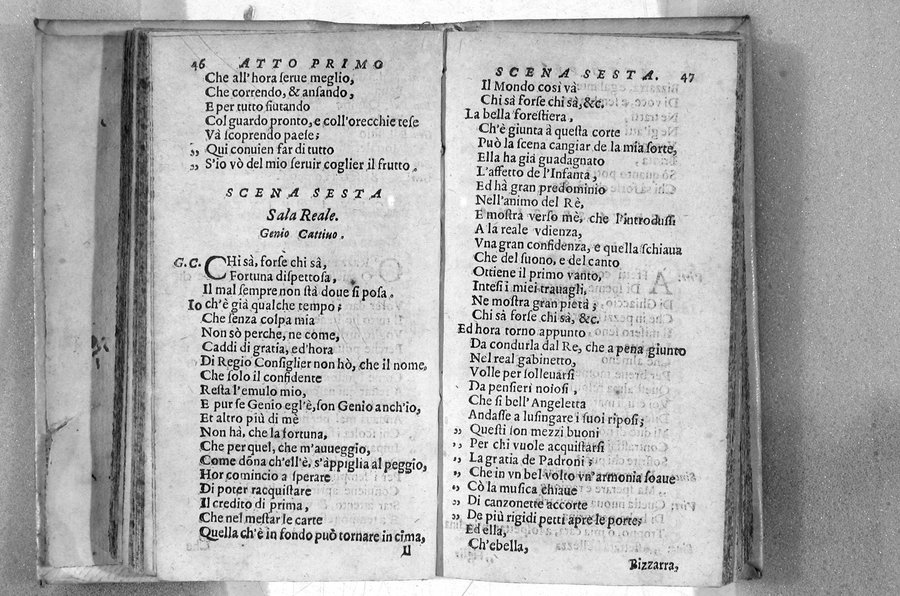 46 ATTO PRIMO
Che all'hora serue meglio,
Che correndo, & ansando,
E per tutto fiutando
Col guardo pronto, e coll'orecchie tese
Và scoprendo paese;
„ Qui conuien far di tutto
„ S'io vò del mio seruir coglier il frutto.
SCENA SESTA
Sala Reale.
Genio Cattiuo.
G.C. CHi sà, forse chi sà,
Fortuna dispettosa,
Il mal sempre non stà doue si posa.
Io ch'è già qualche tempo;
Che senza colpa mia
Non sò perche, ne come,
Caddi di gratia, ed'hora
Di Regio Consiglier non hò, che il nome,
Che solo il confidente
Resta l'emulo mio,
E pur se Genio egl'è, son Genio anch'io,
Et altro più di me
Non hà, che la fortuna,
Che per quel, che m'auueggio,
Come dōna ch'ell'è, s'appiglia al peggio,
Hor comincio a sperare
Di poter racquistare
Il credito di prima,
Che nel mestar le carte
Quella ch'è in fondo può tornare in cima,
Il
SCENA SESTA. 47
Il Mondo così và
Chi sà forse chi sà, &c.
La bella forestiera,
Ch'è giunta à questa corte
Può la scena cangiar de la mia sorte,
Ella ha già guadagnato
L'affetto de l'Infanta,
Ed hà gran predominio
Nell'animo del Rè,
E mostrà verso mè, che l'introdussi
A la reale vdienza,
Vna gran confidenza, e quella schiaua
Che del suono, e del canto
Ottiene il primo vanto,
Intesi i miei trauagli,
Ne mostra gran pietà;
Chi sà forse chi sà, &c.
Ed hora torno appunto
Da condurla dal Re, che a pena giunto
Nel real gabinetto,
Volle per solleuarsi
Da pensieri noiosi,
Che sì bell'Angeletta
Andasse a lusingare i suoi riposi;
„ Questi son mezzi buoni
„ Per chi vuole acquistarsi
„ La gratia de Padroni;
„ Che in vn bel volto vn'armonia soaue
„ Cō la musica chiaue
„ Di canzonette accorte
„ De più rigidi petti apre le porte;
Ed ella,
Ch'ebella,
Bizzarra,